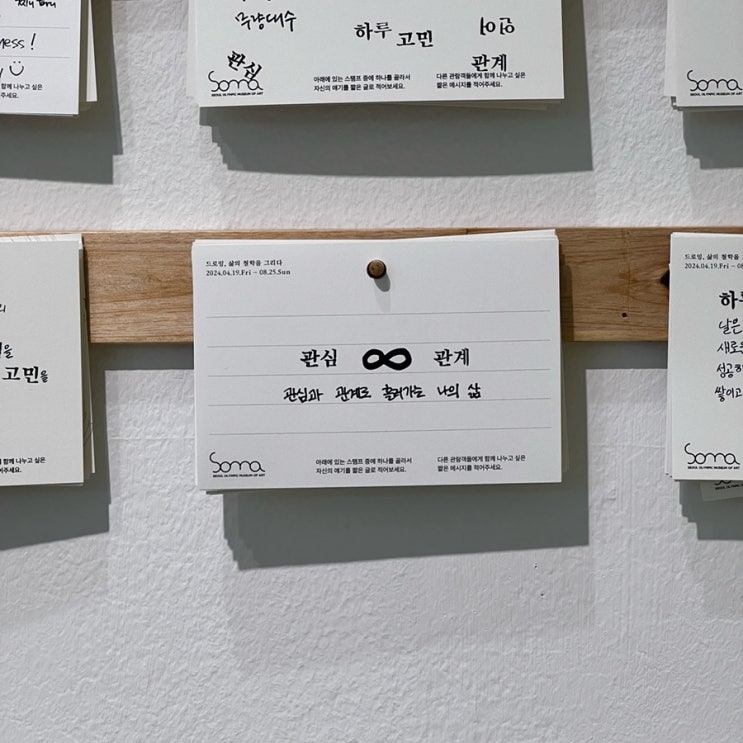 ness !
함께 나누고 싶은
주세요.
무량대수
하루 고민
관계
관심
Soma
SEOUL OLYMPIC MUSEUM OF ART
아래에 있는 스탬프 중에 하나를 골라서
자신의 얘기를 짧은 글로 적어보세요.
다른 관람객들에게 함께 나누고 싶은
짧은 메시지를 적어주세요.
Soma
SEOUL OLYMPIC MUSEUM OF ART
고민을
함께 나누고 싶은
주세요.
드로잉, 삶의 철학을 그리다
2024.04.19.Fri – 08.25.Sun
관심 ∞ 관계
관심과 관계로 흘러가는 나의 삶
Soma
SEOUL OLYMPIC MUSEUM OF ART
아래에 있는 스탬프 중에 하나를 골라서
자신의 얘기를 짧은 글로 적어보세요.
다른 관람객들에게 함께 나누고 싶은
짧은 메시지를 적어주세요.
드로잉, 삶의 철학을
2024.04.19.Fri – 08
하루
날은
새로운
쌓이고
Soma
SEOUL OLYMPIC MUSEUM OF ART